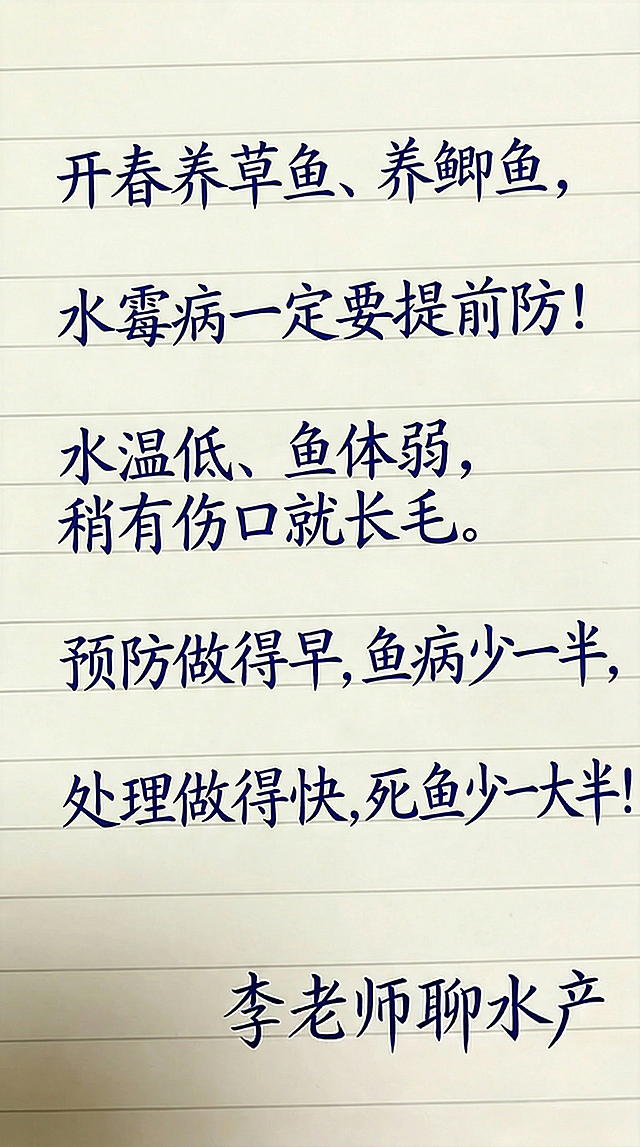 开春养草鱼、养鲫鱼，
水霉病一定要提前防！
水温低、鱼体弱，
稍有伤口就长毛。
预防做得早,鱼病少一半,
处理做得快,死鱼少一大半!
李老师聊水产